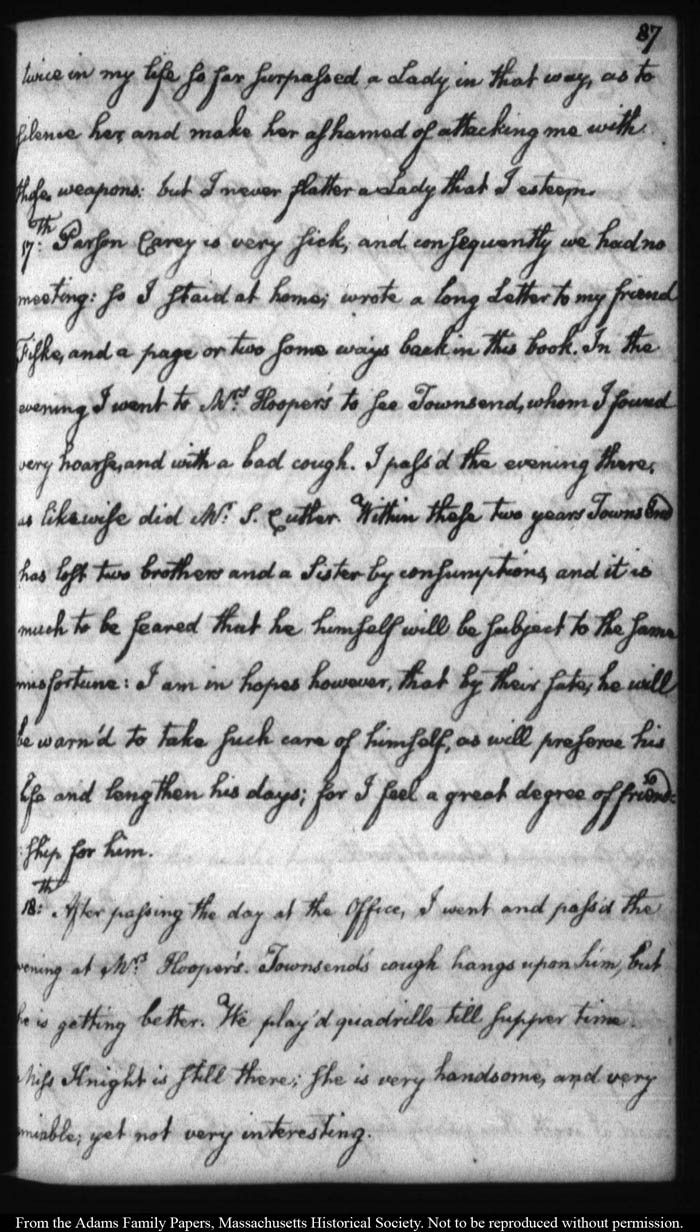 87
twice in my life so far surpassed a Lady in that way, as to
silence her, and make her ashamed of attacking me with
those weapons: but I never flatter a Lady that I esteem.
17:th Parson Carey is very sick, and consequently we had no
meeting: so I staid at home; wrote a long Letter to my friend
Fiske, and a page or two some ways back in this book. In the
evening I went to Mrs. Hooper's to see Townsend, whom I found
very hoarse, and with a bad cough. I pass'd the evening there,
as likewise did Mr. S. Cutler. Within these two years Townsend
has lost two brothers and a Sister by consumptions, and it is
much to be feared that he himself will be subject to the same
misfortune: I am in hopes however, that by their fate, he will
be warn'd to take such care of himself, as will preserve his
life and lengthen his days; for I feel a great degree of friend-
:ship for him.
18:th After passing the day at the Office, I went and pass'd the
evening at Mrs. Hooper's. Townsend's cough hangs upon him, but
he is getting better. We play'd quadrille till supper time.
Miss Knight is still there; she is very handsome, and very
amiable; yet not very interesting.
From the Adams Family Papers, Massachusetts Historical Society. Not to be reproduced without permission.